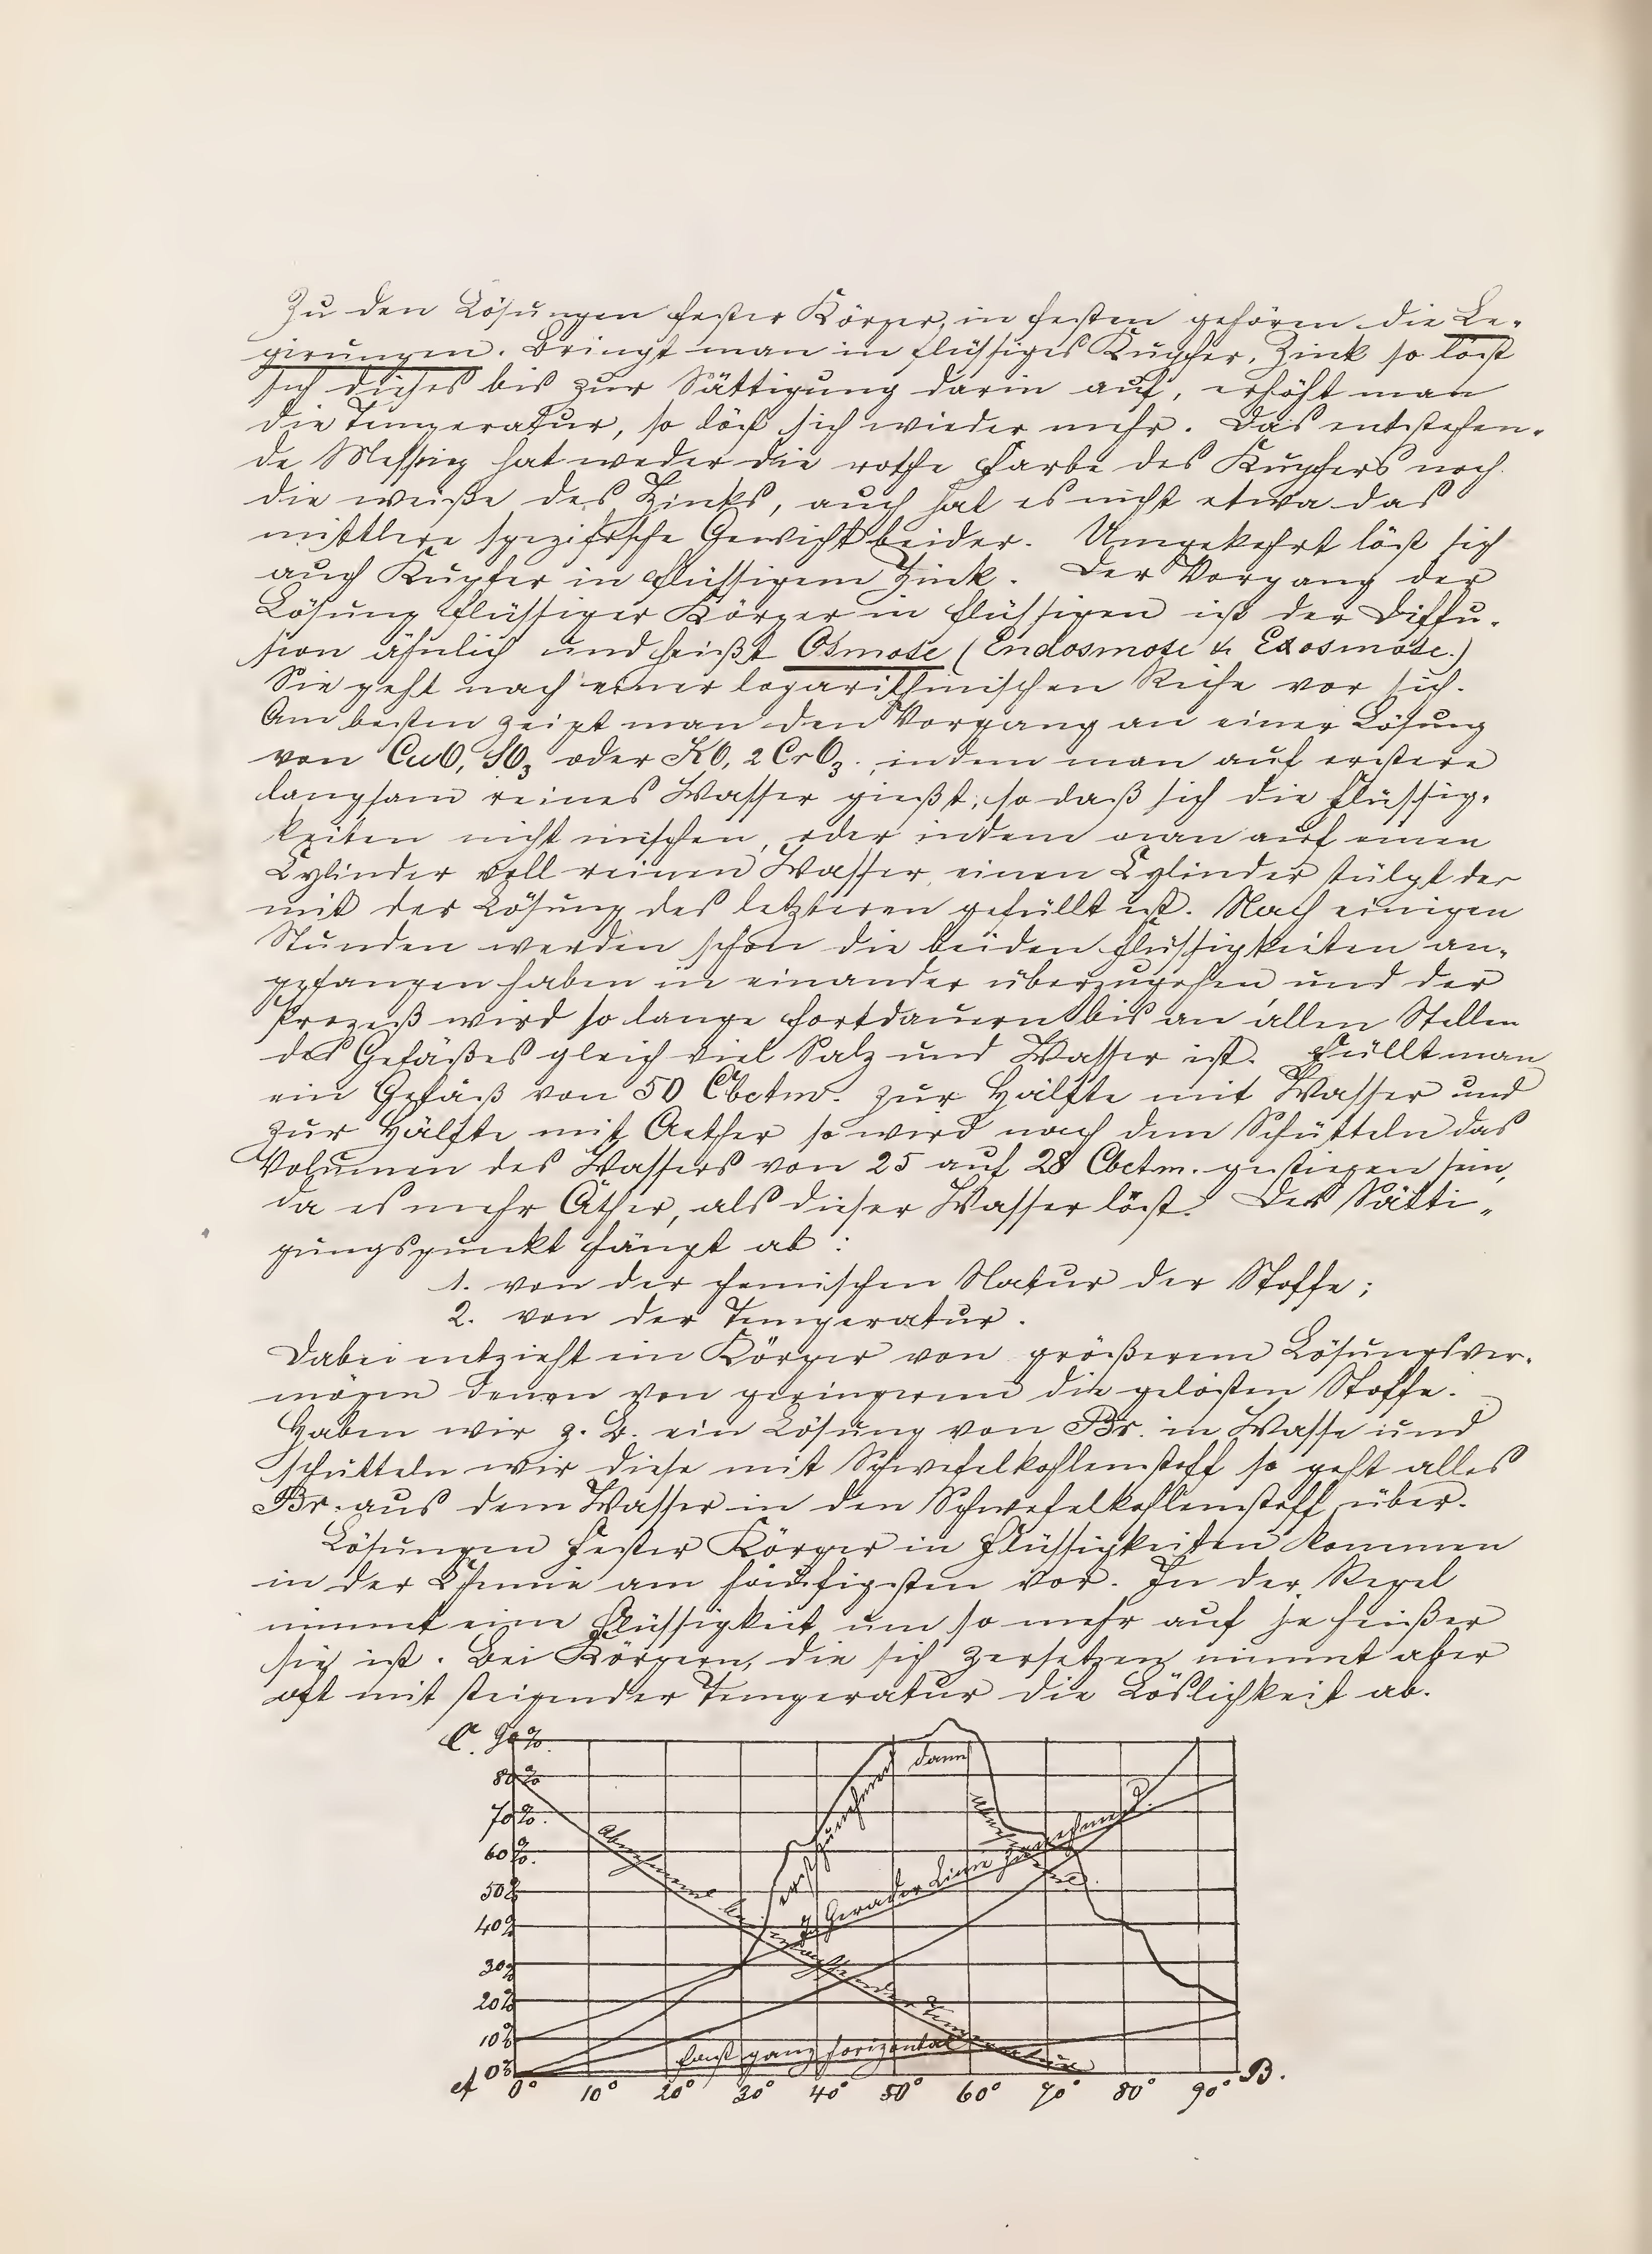 Zu den Lösungen fester Körper, in festen gehören die Le-
girungen. Bringt man in flüssiges Kupfer, Zink so löst
sich dieses bis zur Sättigung darin auf, erhöht man
die Temperatur, so löst sich wieder mehr. Das entstehen-
de Messing hat weder die rothe Farbe des Kupfers noch
die weiße des Zinks, auch hat es nicht etwa das
mittlere spezifische Gewicht beider. Umgekehrt löst sich
auch Kupfer in flüssigem Zink. Der Vorgang der
Lösung flüssiger Körper in flüssigen ist der Diffu-
sion ähnlich und heißt Osmose (Endosmose & Exosmose.)
Sie geht nach einer logarithmischen Reihe vor sich.
Am besten zeigt man den Vorgang an einer Lösung
von CuO, SO3 oder KO, 2CrO3, indem man auf erstere
langsam reines Wasser gießt, so daß sich die Flüssig-
keiten nicht mischen, oder indem man auf einen
Cylinder voll reinen Wasser, einen Cylinder stülpt der
mit der Lösung des letzteren gefüllt ist. Nach einigen
Stunden werden schon die beiden Flüssigkeiten an-
gefangen haben in einander überzugehen und der
Prozeß wird so lange fortdauern bis an allen Stellen
des Gefäßes gleich viel Salz und Wasser ist. Füllt man
ein Gefäß von 50 Cbctm. zur Hälfte mit Wasser und
zur Hälfte mit Aether so wird nach dem Schütteln das
Volumen des Wassers von 25 auf 28 Cbctm. gestiegen sein,
da es mehr Äther, als dieser Wasser löst. Der Sätti-
gungspunkt hängt ab:
1. von der chemischen Natur der Stoffe;
2. von der Temperatur.
Dabei entzieht ein Körper von größerem Lösungsver-
mögen denen von geringerem die gelösten Stoffe.
Haben wir z. B. ein Lösung von Br. in Wasse und
schütteln wir diese mit Schwefelkohlenstoff so geht alles
Br. aus dem Wasser in den Schwefelkohlenstoff über.
Lösungen fester Körper in Flüssigkeiten kommen
in der Chemie am häufigsten vor. In der Regel
nimmt eine Flüssigkeit um so mehr auf je heißer
sie ist. Bei Körpern, die sich zersetzen nimmt aber
oft mit steigender Temperatur die Löslichkeit ab.
C. 90%.
80%
70%.
60%.
50%
40%
30%
20%
10%
0%
erst zunehmend dann
Abnehmend
in Gerader Linie zunehmend.
fast ganz horizontal
A 0° 10° 20° 30° 40° 50° 60° 70° 80° 90° B.